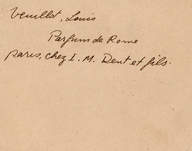 Veuillot, Louis
Parfum de Rome
Paris, chez I. M. Dent et fils.